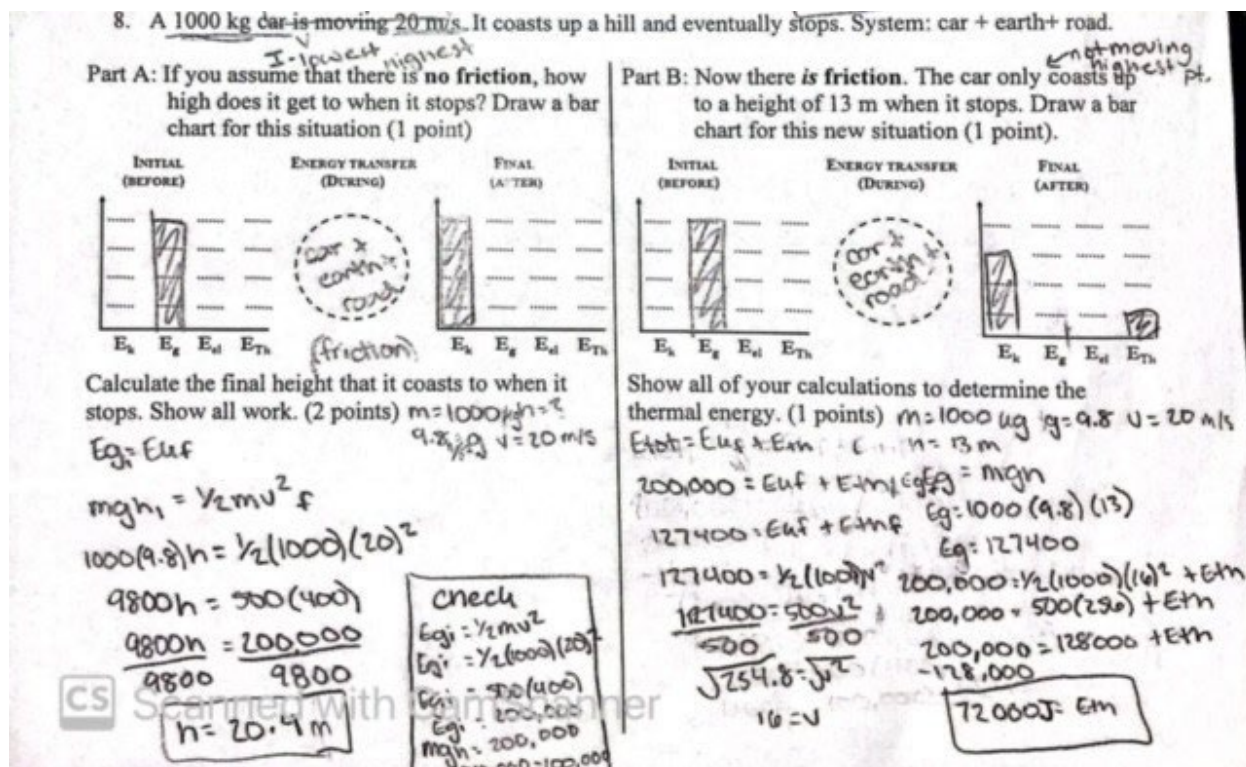 8. A 1000 kg car is moving 20 m/s. It coasts up a hill and eventually stops. System: car + earth+ road.
I-lowest highest
Part A: If you assume that there is no friction, how
high does it get to when it stops? Draw a bar
chart for this situation (1 point)
INITIAL
(BEFORE)
ENERGY TRANSFER
(DURING)
FINAL
(AFTER)
car +
earth +
road
Ek Eg Eel ETh
(friction)
Ek Eg Eel ETh
Calculate the final height that it coasts to when it
stops. Show all work. (2 points) m=1000kg h=?
9.8=g v=20m/s
Egi=Ekf
mghi = 1/2mv²f
1000(9.8)h=1/2(1000)(20)²
9800h = 500(400)
9800h = 200,000
9800 9800
h= 20.4 m
check
Egi = 1/2mv²
Egi = 1/2(1000)(20)²
Egi = 500(400)
Egi = 200,000
mgh = 200,000
not moving
highest pt.
Part B: Now there is friction. The car only coasts up
to a height of 13 m when it stops. Draw a bar
chart for this new situation (1 point).
INITIAL
(BEFORE)
ENERGY TRANSFER
(DURING)
FINAL
(AFTER)
car +
earth +
road
Ek Eg Eel ETh
Ek Eg Eel ETh
Show all of your calculations to determine the
thermal energy. (1 points) m=1000 kg g=9.8 v=20 m/s
Etot=Ekf + Eth h=13 m
200,000 = Ekf + Eth
Eg = mgh
Eg=1000(9.8)(13)
Eg=127400
127400=Ekf + Ethf
127400=1/2(1000)v²
127400=500v²
500 500
√254.8=√v²
16=v
200,000=1/2(1000)(16)² + Eth
200,000 = 500(256) + Eth
200,000=128000 + Eth
-128,000
72000J= Eth
CS Scanned with CamScanner